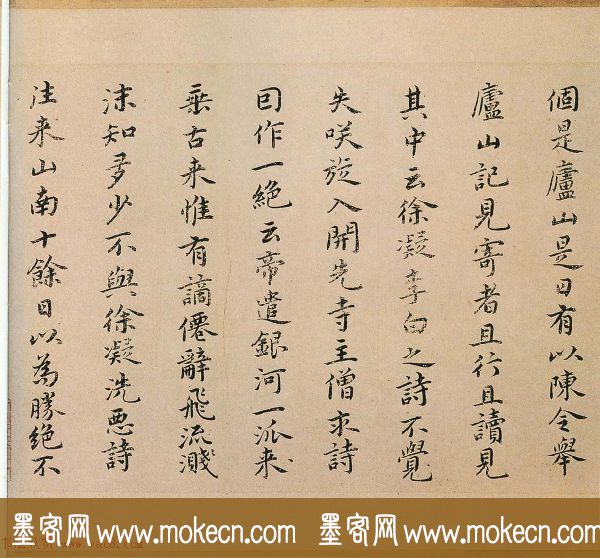 個是廬山是日有以陳令舉
廬山記見寄者且行且讀見
其中云徐凝李白之詩不覺
失咲旋入開先寺主僧求詩
囙作一絕云帝遣銀河一派来
垂古来惟有謫僊辭飛流濺
沫知多少不與徐凝洗恶詩
往来山南十餘日以為勝絕不
墨客网 www.mokecn.com 墨客网 www.mokecn.com